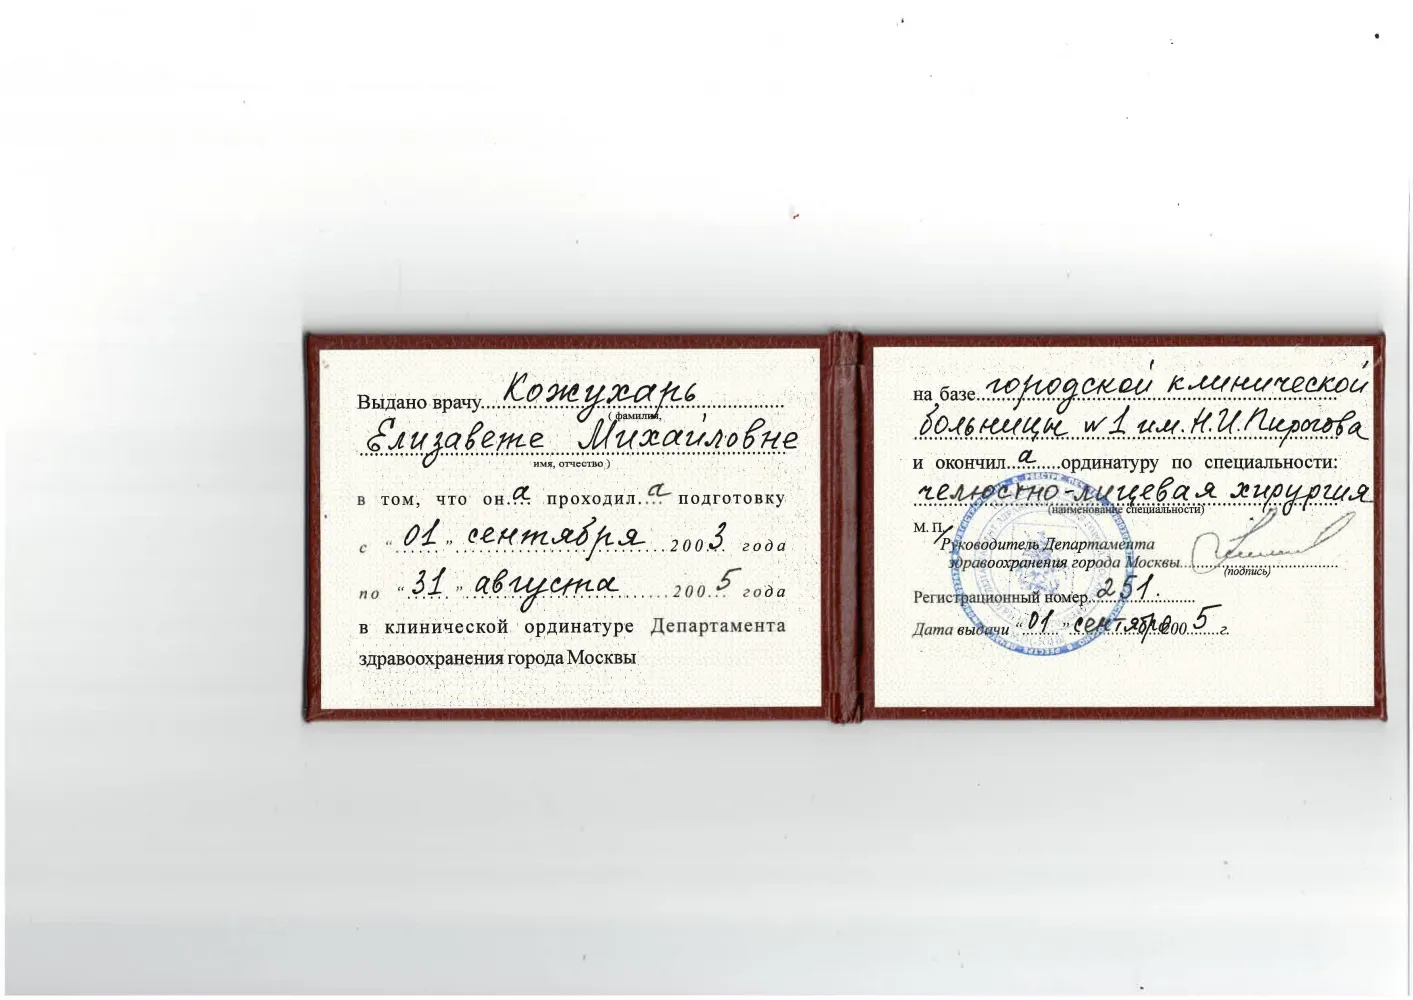 Выдано врачу Кожухарь
( фамилия,
Елизавете Михайловне
имя, отчество )
в том, что он а проходил а подготовку
с "01" сентября 2003 года
по "31" августа 2005 года
в клинической ординатуре Департамента
здравоохранения города Москвы
на базе городской клинической
больницы №1 им. Н.И. Пирогова
и окончил а ординатуру по специальности:
челюстно-лицевая хирургия
(наименование специальности)
М. П.
Руководитель Департамента
здравоохранения города Москвы
(подпись)
Регистрационный номер 251.
Дата выдачи "01" сентября 2005 г.